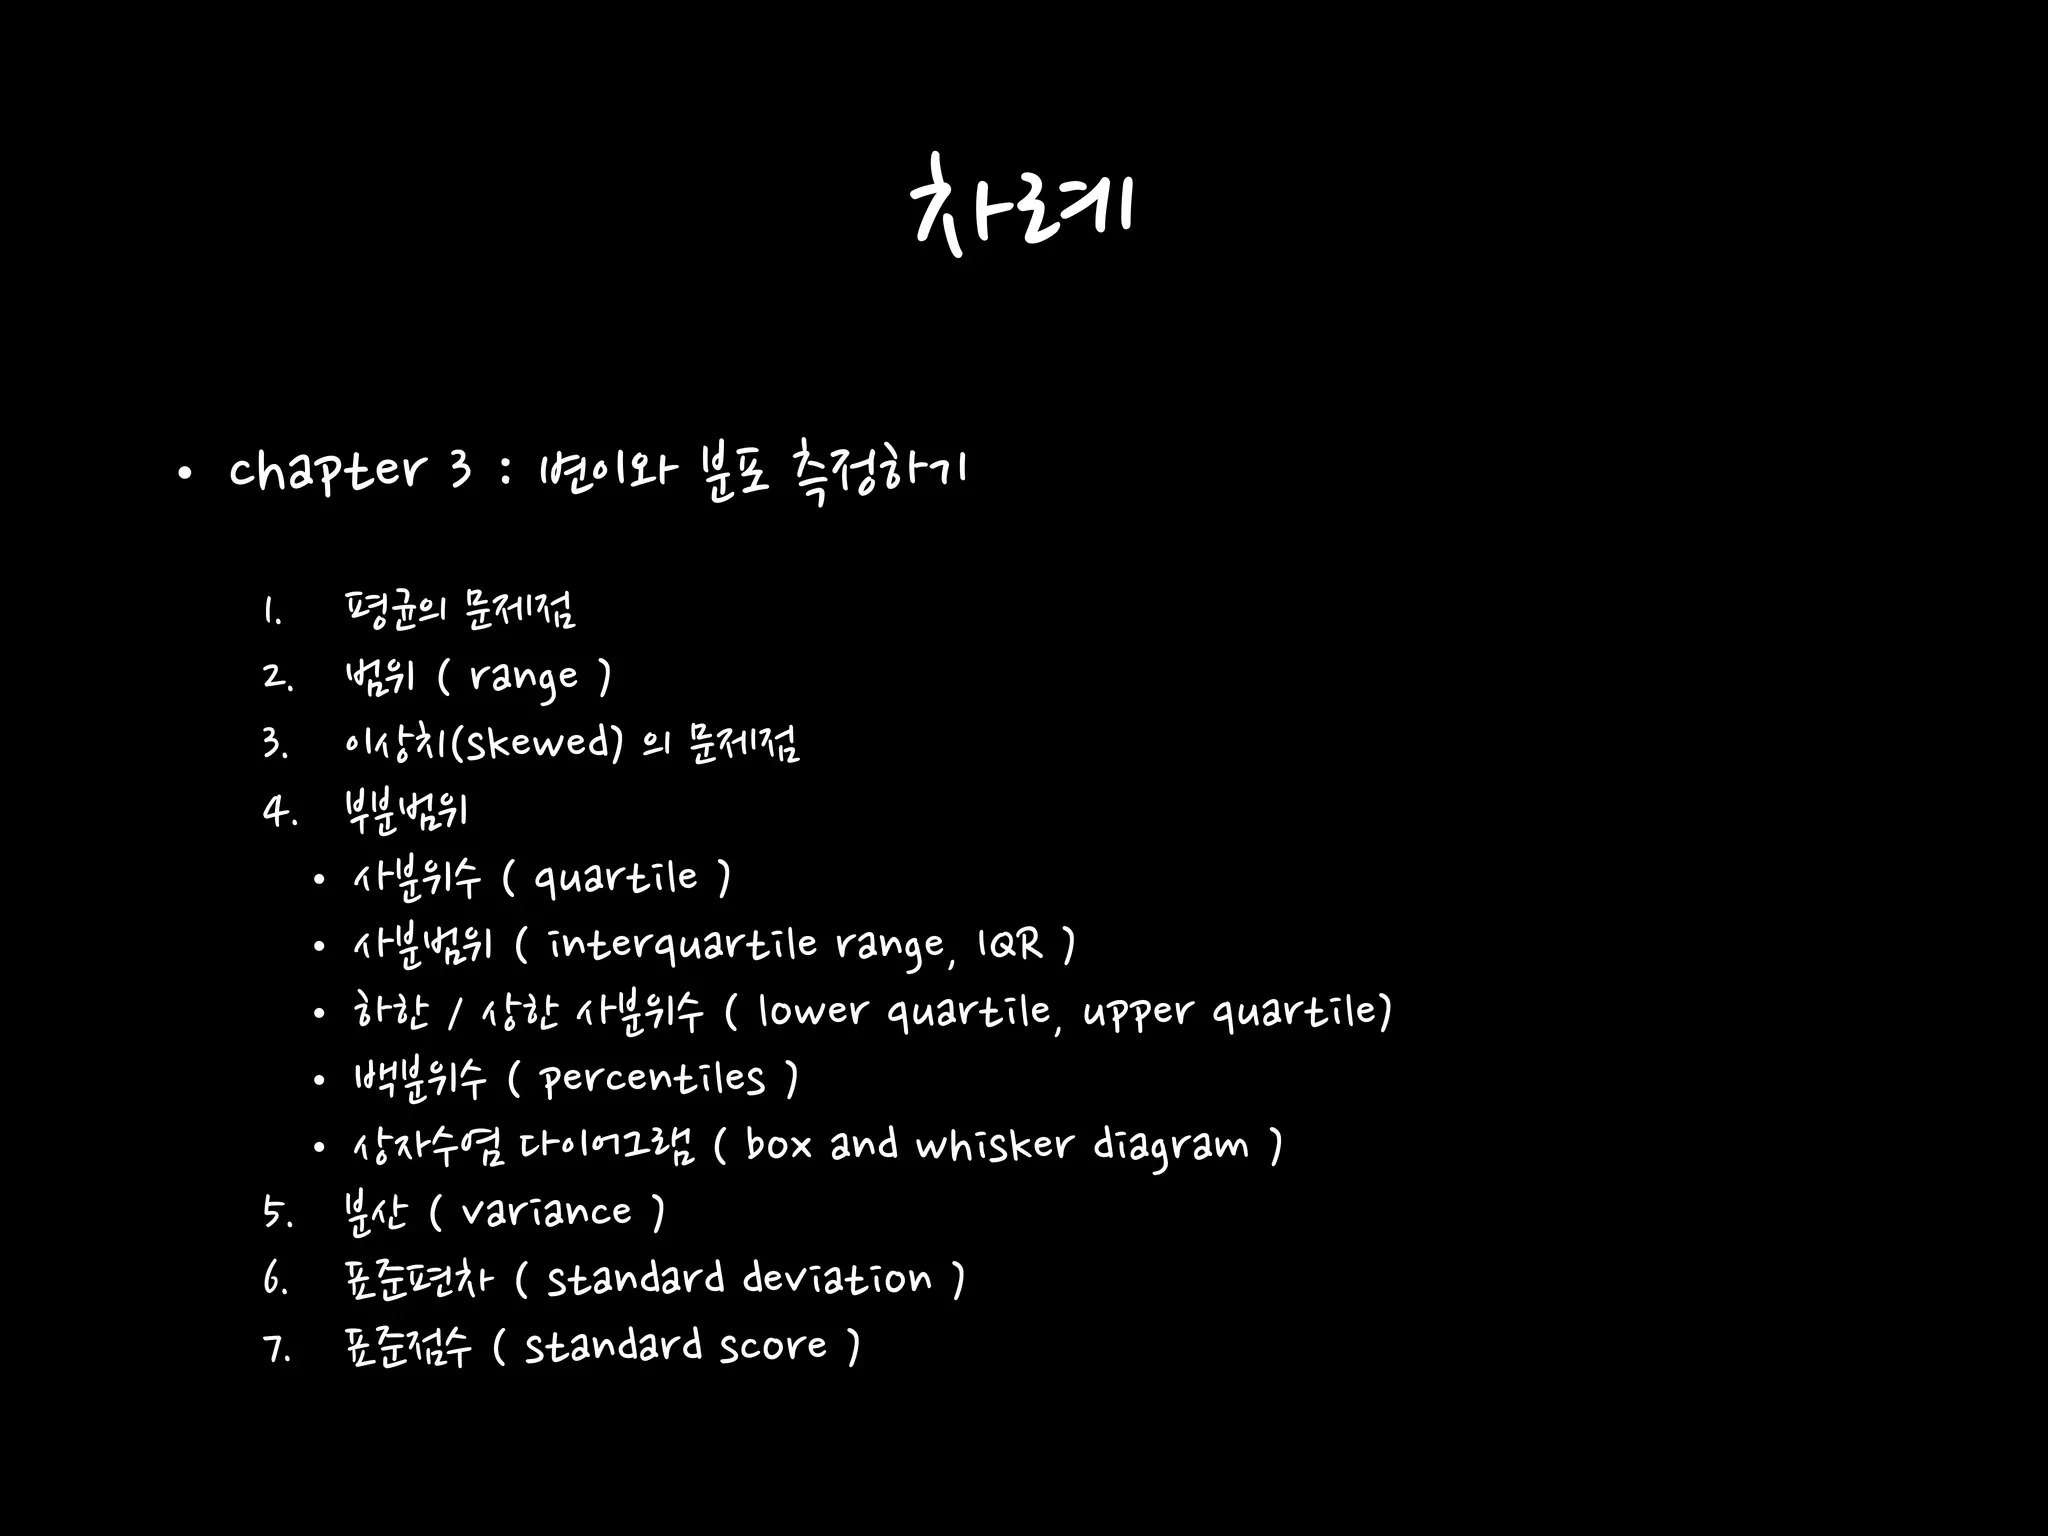 차례
• chapter 3 : 변이와 분포 측정하기
1. 평균의 문제점
2. 범위 ( range )
3. 이상치(skewed) 의 문제점
4. 부분범위
• 사분위수 ( quartile )
• 사분범위 ( interquartile range, IQR )
• 하한 / 상한 사분위수 ( lower quartile, upper quartile)
• 백분위수 ( percentiles )
• 상자수염 다이어그램 ( box and whisker diagram )
5. 분산 ( variance )
6. 표준편차 ( standard deviation )
7. 표준점수 ( standard score )